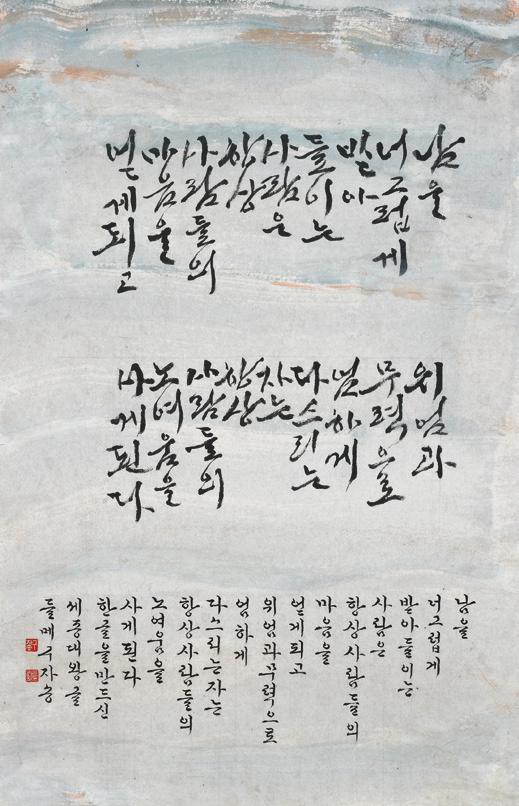 남을
너그럽게
받아
들이는
사람은
항상
사람들의
마음을
얻게되고
위엄과
무력으로
엄하게
다스리는
자는
항상
사람들의
노여움을
사게된다
남을
너그럽게
받아들이는
사람은
항상사람들의
마음을
얻게되고
위엄과무력으로
엄하게
다스리는자는
항상사람들의
노여움을
사게된다
한글을만드신
세종대왕글
들메구자송